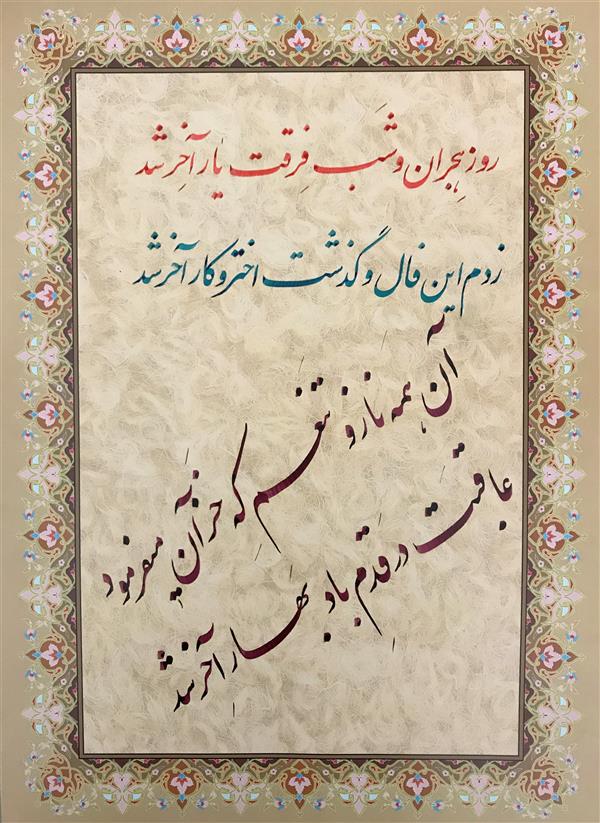 روز هِجران و شَب فِرقت یار آخِر شد
زدم این فال و گذشت اختر و کار آخر شد
آن همه ناز و تنعّم که خزان میفرمود
عاقبت در قدَمِ باد بهار آخر شد